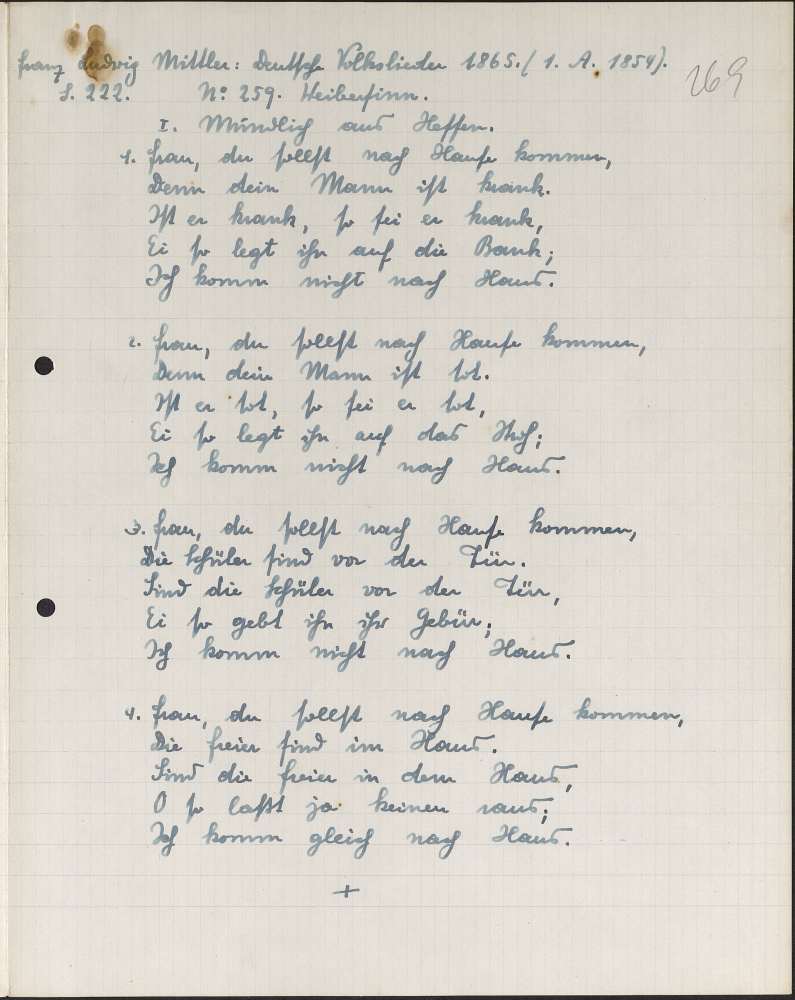 Franz Ludwig Mittler: Deutsche Volkslieder 1865. (1. A. 1854).
269
S. 222. No 259. Weibersinn.
I. Mündlich aus Hessen.
1. Frau, du sollst nach Hause kommen,
Denn dein Mann ist krank.
Ist er krank, so sei er krank,
Ei so legt ihn auf die Bank;
Ich komm nicht nach Haus.
2. Frau, du sollst nach Hause kommen,
Denn dein Mann ist tot.
Ist er tot, so sei er tot,
Ei so legt ihn auf das Stroh;
Ich komm nicht nach Haus.
3. Frau, du sollst nach Hause kommen,
Die Schüler sind vor der Tür.
Sind die Schüler vor der Tür,
Ei so gebt ihn ihr Gebür;
Ich komm nicht nach Haus.
4. Frau, du sollst nach Hause kommen,
Die Freier sind im Haus.
Sind die Freier in dem Haus,
O so laßt ja keinen raus;
Ich komm gleich nach Haus.
+